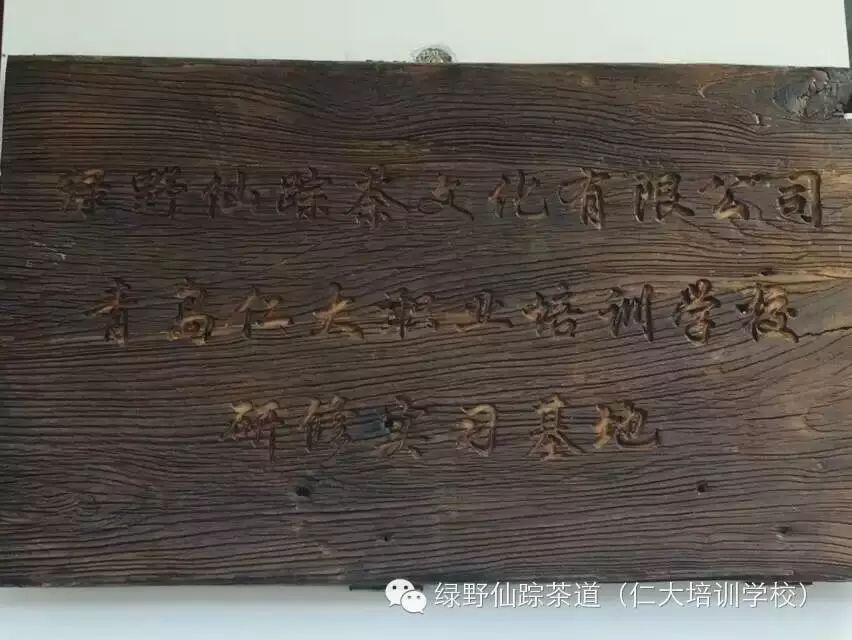 绿野仙踪茶文化有限公司
青岛仁大职业培训学校
研修实习基地
绿野仙踪茶道（仁大培训学校）